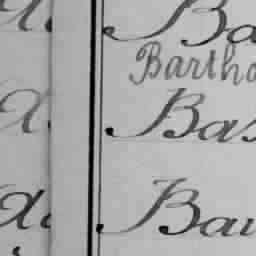 Ba
Bartho
Bas
Bau